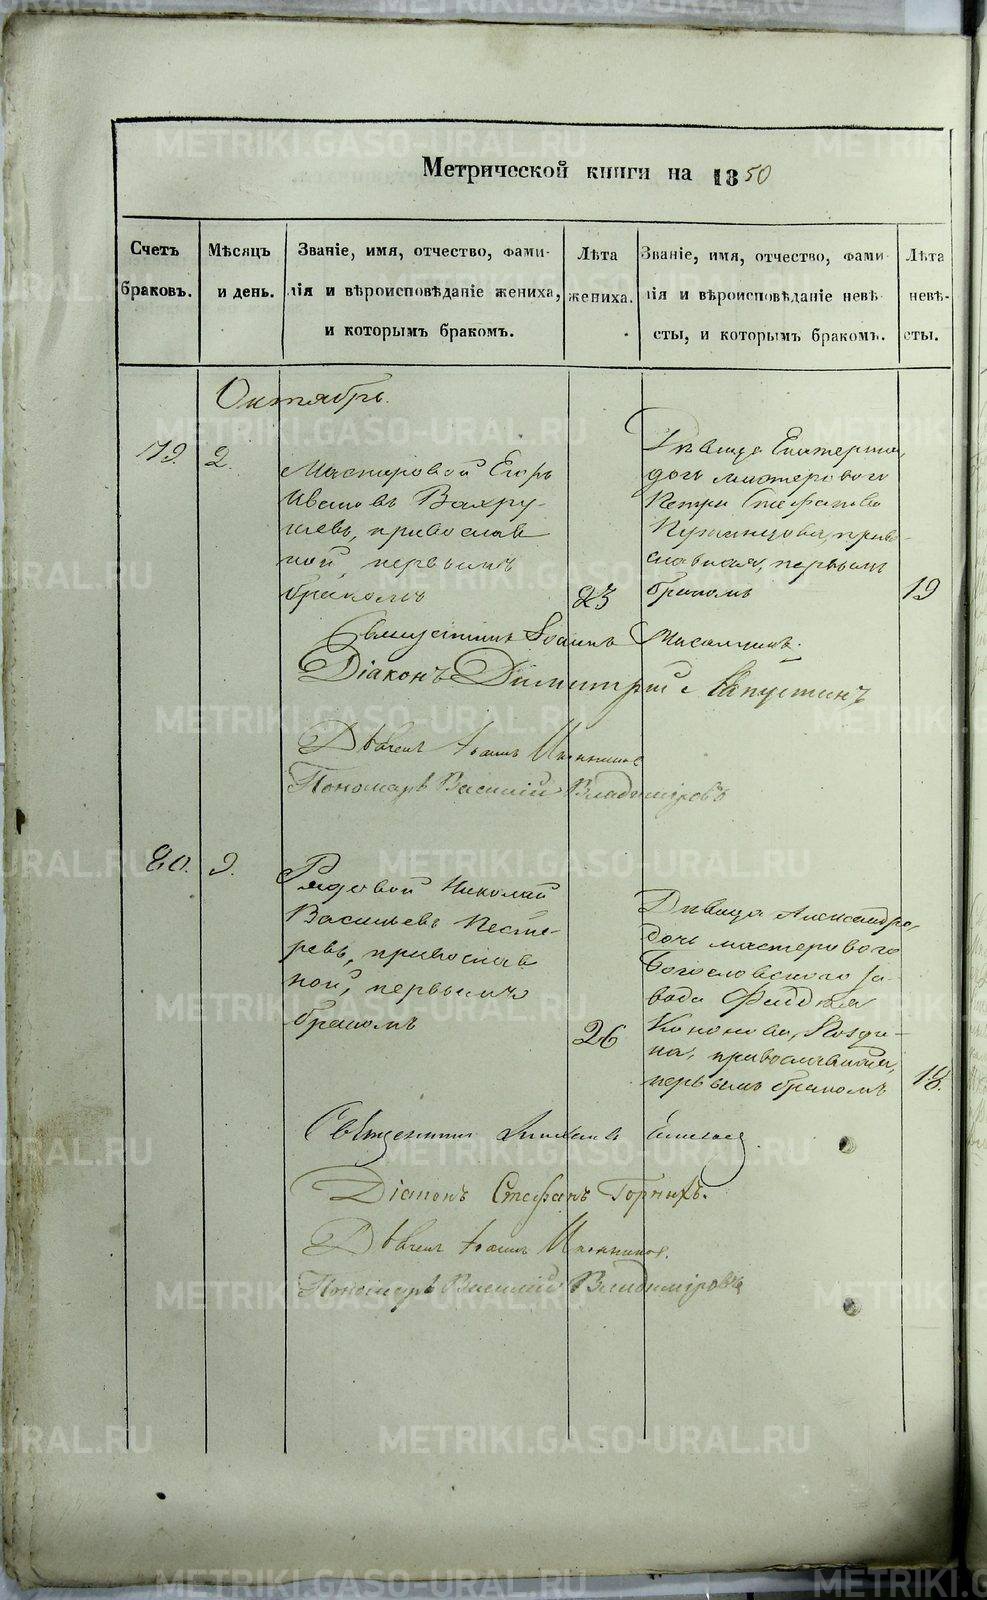 Метрической книги на 1850
Счетъ браковъ.
Мѣсяцъ и день.
Званіе, имя, отчество, фами-
лія и вѣроисповѣданіе жениха,
и которымъ бракомъ.
Лѣта жениха.
Званіе, имя, отчество, фами-
лія и вѣроисповѣданіе невѣ-
сты, и которымъ бракомъ.
Лѣта невѣ-
сты.
Октябрь.
79. 2.
Мастеровой Егоръ
Ивановъ Вахру-
шевъ, православ
ной, первымъ
бракомъ
23
Дѣвица Екатерина,
дочь мастероваго
Петра Стефанова
Кузнецова, право-
славная, первымъ
бракомъ
19
Священникъ Іоаннъ
Діаконъ Димитрій Капустинъ
Дьячекъ Іоаннъ Иконниковъ
Пономарь Василій Владиміровъ
80. 9.
Рядовой Николай
Васильевъ Несте-
ревъ, православ
ной, первымъ
бракомъ
26
Дѣвица Александра,
дочь мастероваго
Богословскаго за-
вода Фаддея
Кононова,
на, православная,
первымъ бракомъ
18.
Священникъ
Діаконъ Стефанъ Горныхъ.
Дьячекъ Іоаннъ Иконниковъ.
Пономарь Василій Владиміровъ
METRIKI.GASO-URAL.RU